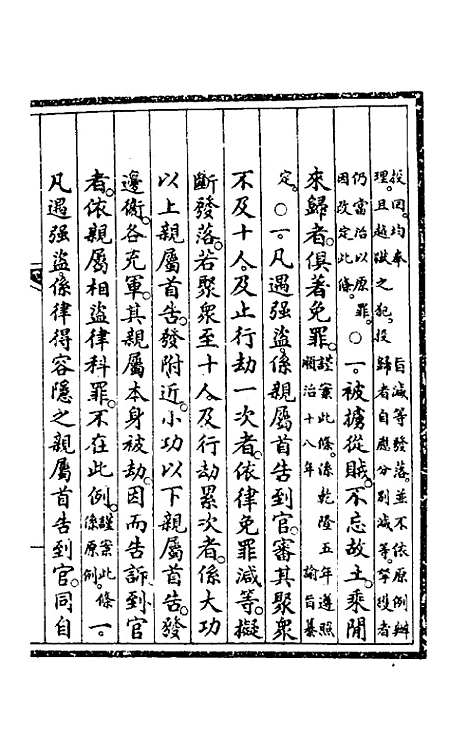 投回。均奉旨減等發落。並不依原例辦
理。且越獄之犯。投歸者自應分別減等。拏獲者
仍當治以原罪。因改定此條。○一。被擄從賊。不忘故土。乘閒
來歸者。俱著免罪。謹案此條。係乾隆五年遵照順治十八年諭旨纂
定。○一。凡遇强盜。係親屬首告到官。審其聚衆
不及十人。及止行劫一次者。依律免罪減等。擬
斷發落。若聚衆至十人。及行劫累次者。係大功
以上親屬首告。發附近。小功以下親屬首告。發
邊衞。各充軍。其親屬本身被劫。因而告訴到官
者。依親屬相盜律科罪。不在此例。謹案此條係原例。一。
凡遇强盜。係律得容隱之親屬首告到官。同自